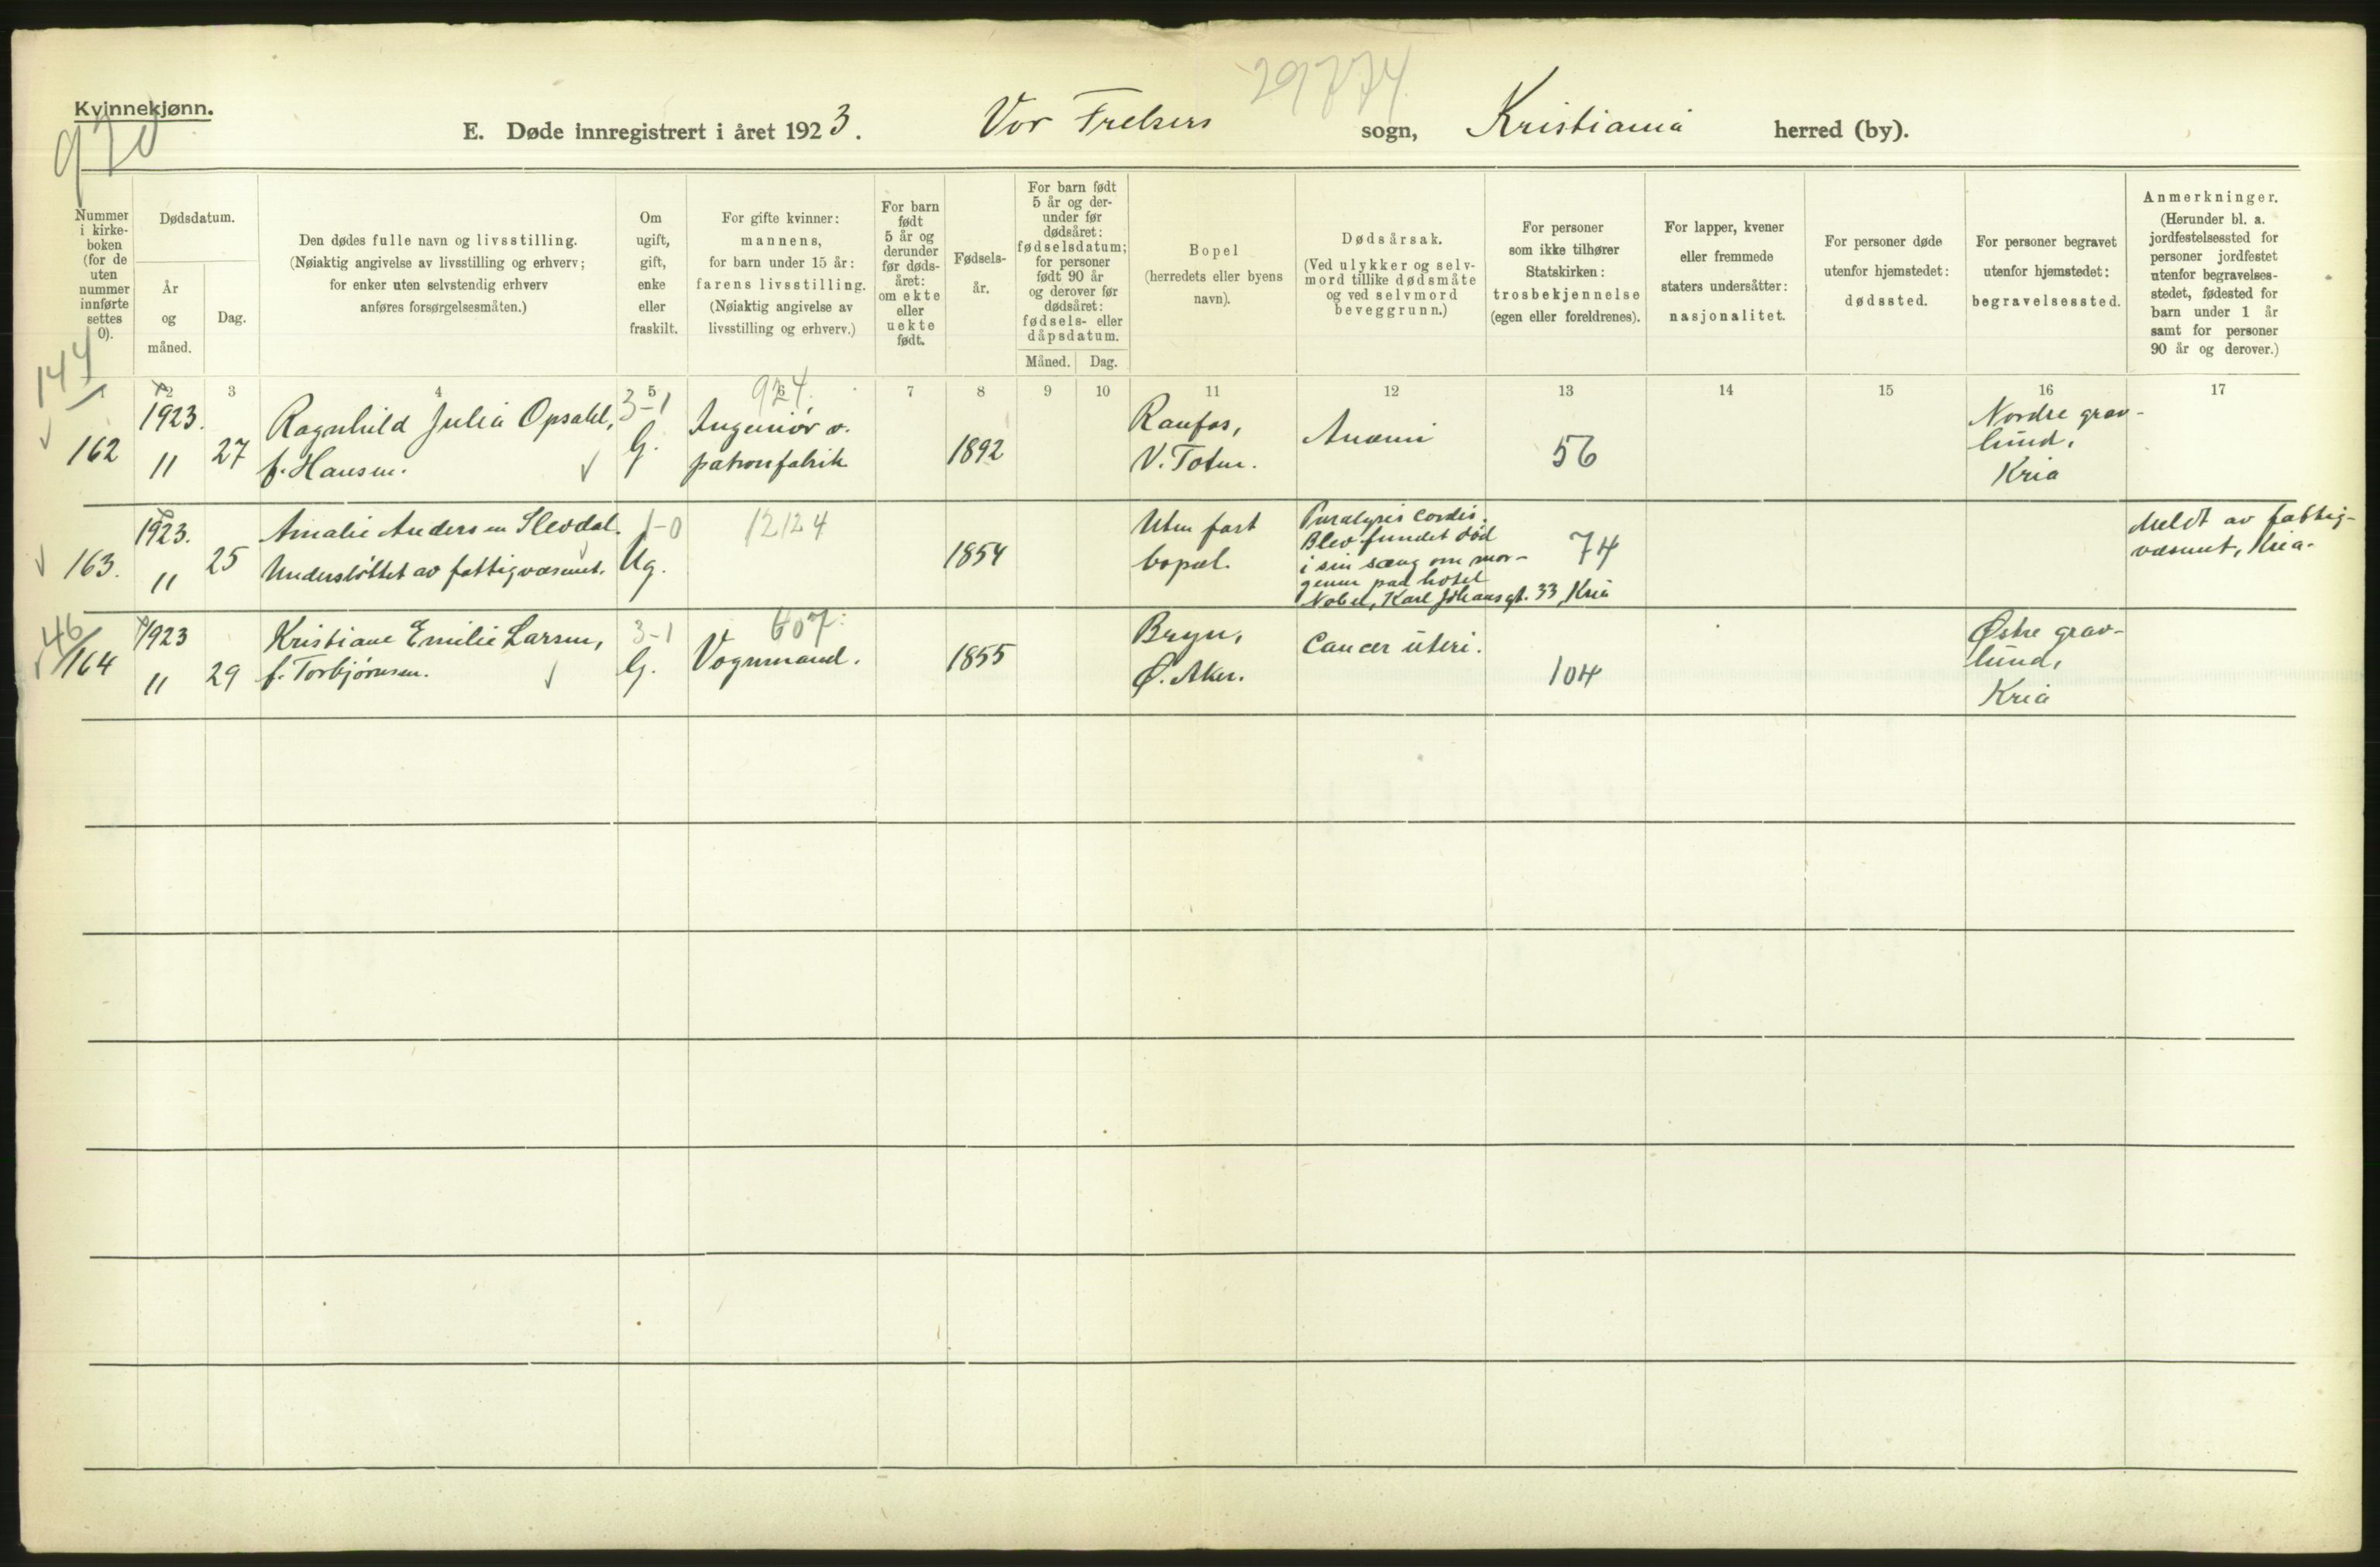 Kvinnekjønn.
970
29774
E. Døde innregistrert i året 1923. Vor Frelsers sogn, Kristiania herred (by).
Nummer
i kirke-
boken
(for de
uten
nummer
innførte
settes
0).
Dødsdatum.
År
og
måned.
Dag.
Den dødes fulle navn og livsstilling.
(Nøiaktig angivelse av livsstilling og erhverv;
for enker uten selvstendig erhverv
anføres forsørgelsesmåten.)
Om
ugift,
gift,
enke
eller
fraskilt.
For gifte kvinner:
mannens,
for barn under 15 år:
farens livsstilling.
(Nøiaktig angivelse av
livsstilling og erhverv.)
For barn
født
5 år og
derunder
før døds-
året:
om ekte
eller
uekte
født.
Fødsels-
år.
For barn født
5 år og der-
under før
dødsåret:
fødselsdatum;
for personer
født 90 år
og derover før
dødsåret:
fødsels- eller
dåpsdatum.
Måned. Dag.
Bopel
(herredets eller byens
navn).
Dødsårsak.
(Ved ulykker og selv-
mord tillike dødsmåte
og ved selvmord
beveggrunn.)
For personer
som ikke tilhører
Statskirken:
trosbekjennelse
(egen eller foreldrenes).
For lapper, kvener
eller fremmede
staters undersåtter:
nasjonalitet.
For personer døde
utenfor hjemstedet:
dødssted.
For personer begravet
utenfor hjemstedet:
begravelsessted.
Anmerkninger.
(Herunder bl. a.
jordfestelsessted for
personer jordfestet
utenfor begravelses-
stedet, fødested for
barn under 1 år
samt for personer
90 år og derover.)
1 2 3 4 5 6 7 8 9 10 11 12 13 14 15 16 17
144
162
1923.
11
27
Ragnhild Julia Opsahl,
f. Hansen.
3-1
G.
924.
Ingeniør v.
patronfabrik
1892
Raufos,
V. Toten.
Anæmi
56
Nordre grav-
lund,
Kria
163.
1923.
11
25
Amalie Andersen Slevdal.
Understøttet av fattigvæsenet.
1-0
Ug.
12124
1854
Uten fast
bopæl.
Paralysis cordis.
Blev fundet død
i sin sæng om mor-
genen paa hotel
Nobel, Karl Johansgt. 33, Kria
74
Meldt av fattig-
væsenet, Kria.
46
164
1923
11
29
Kristiane Emilie Larsen,
f. Torbjørnsen.
3-1
G.
607
Vognmand.
1855
Bryn,
Ø. Aker.
Cancer uteri.
104
Østre grav-
lund,
Kria